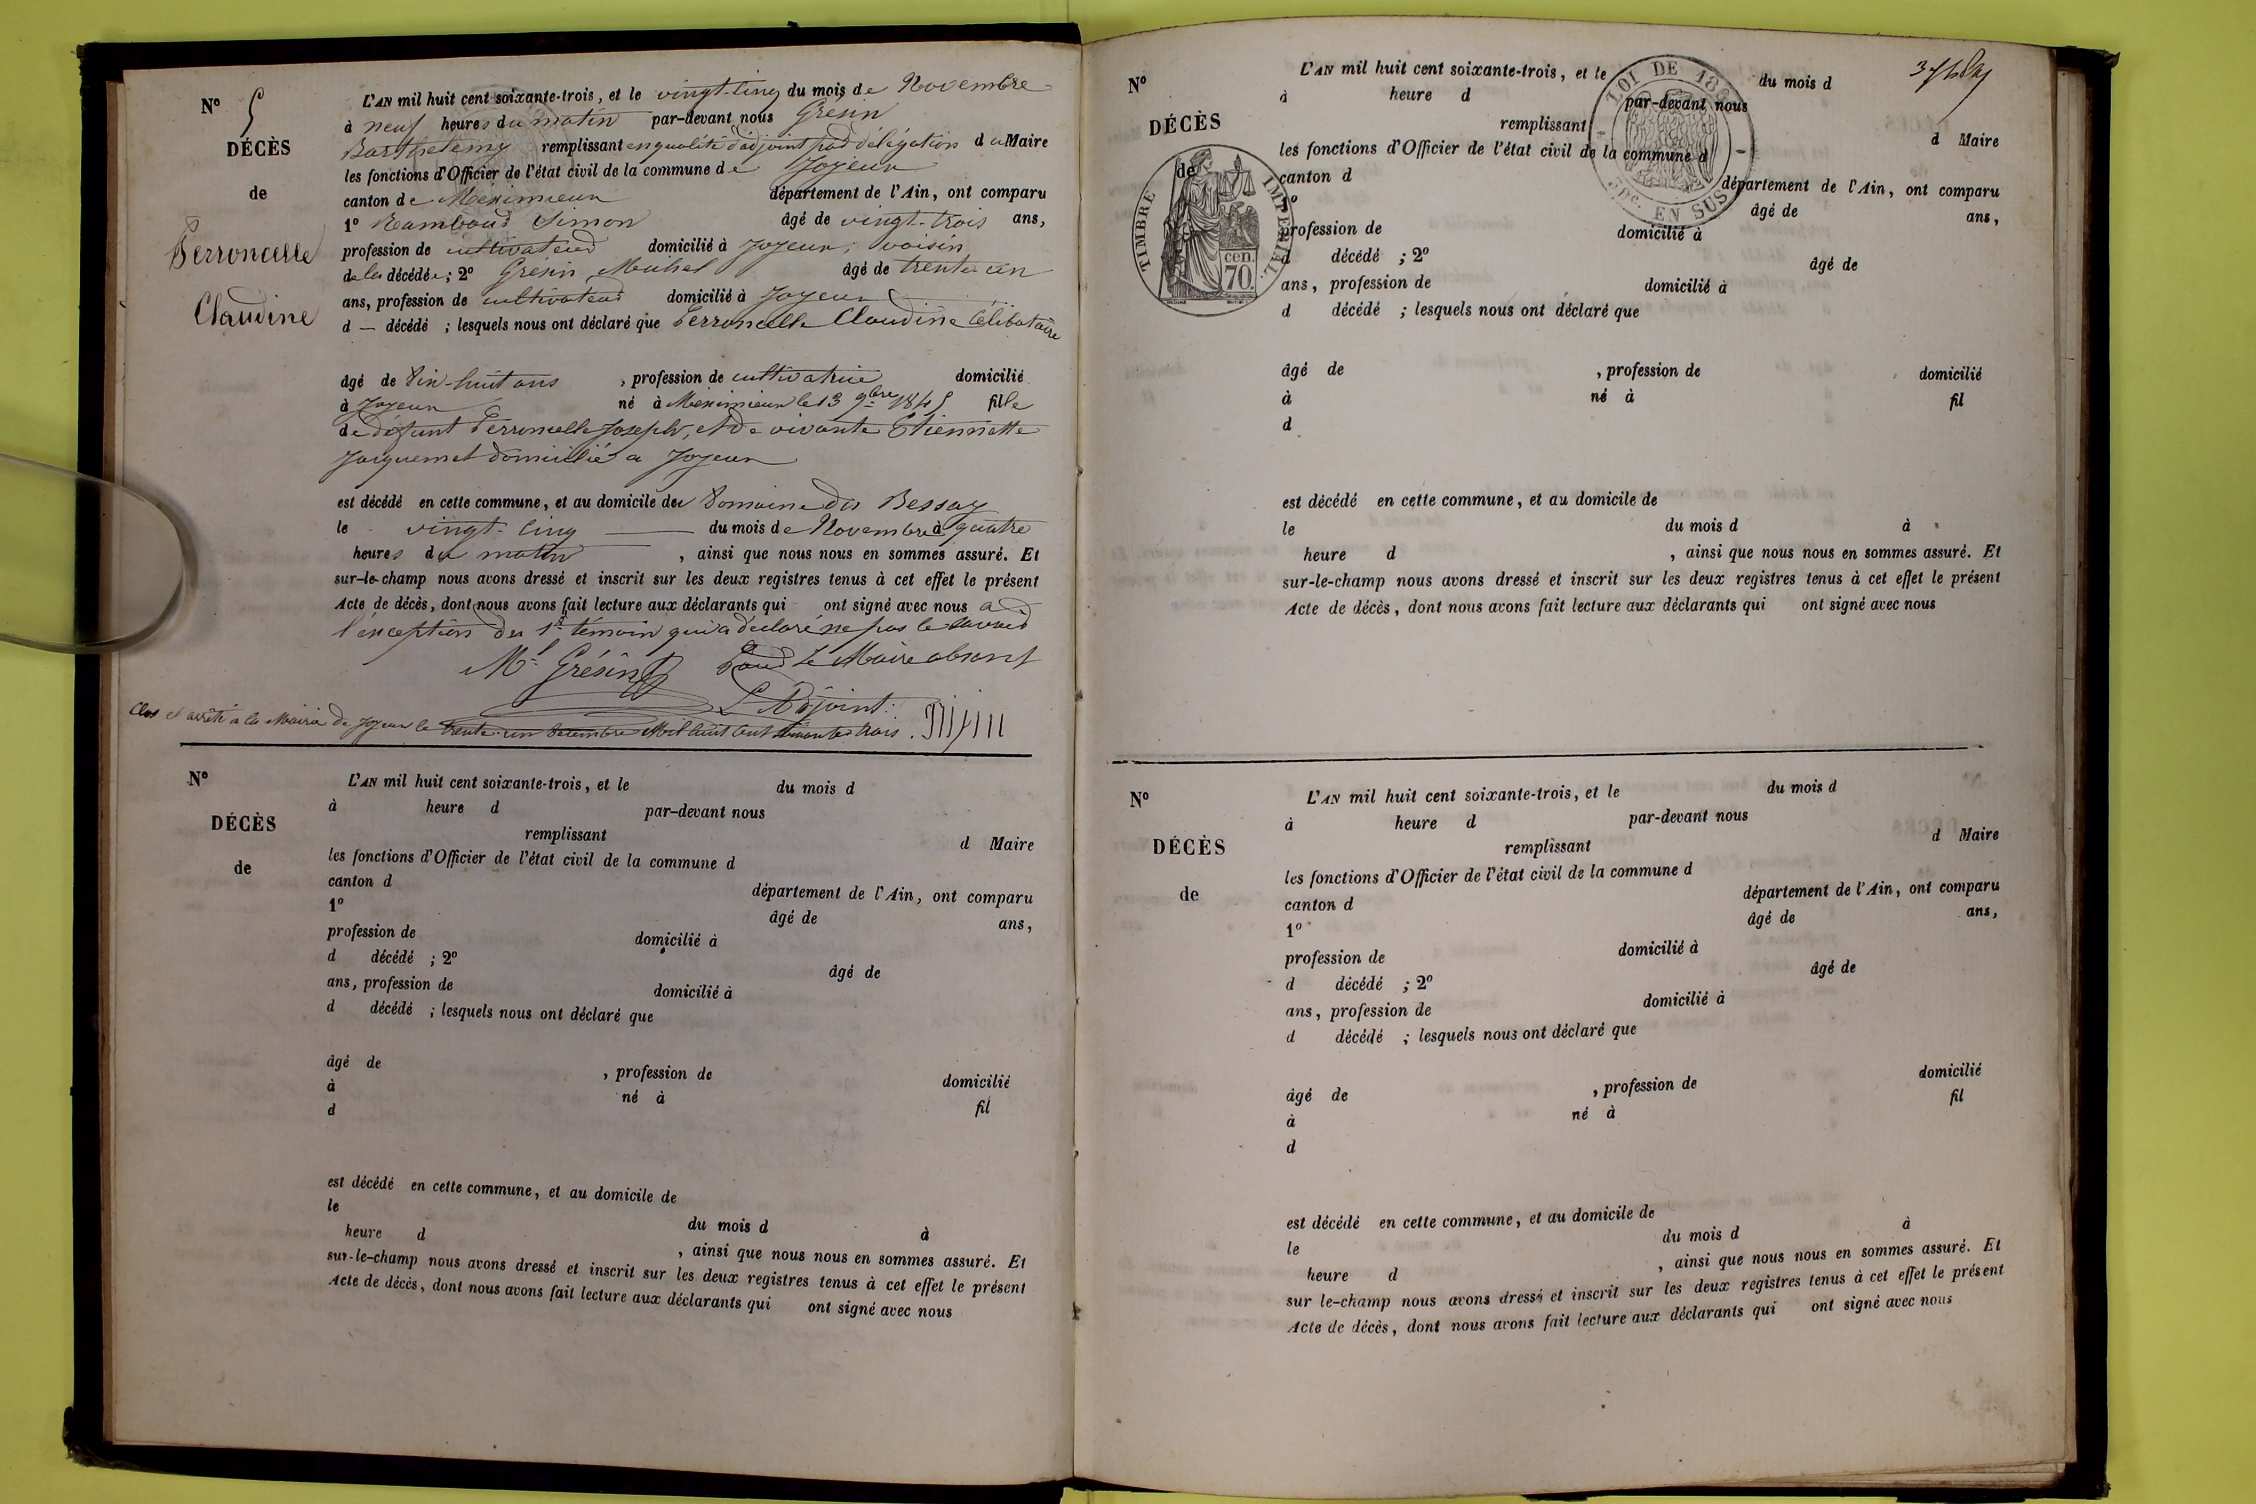 N° 5
DÉCÈS
de
Perroncelle
Claudine
L'AN mil huit cent soixante-trois, et le vingt-cinq du mois de Novembre
à neuf heures du matin par-devant nous Grésin
Barthelemy remplissant en qualité d'adjoint par délégation du Maire
les fonctions d'Officier de l'état civil de la commune de Joyeux
canton de Meximieux département de l'Ain, ont comparu
1° Rambaud Simon âgé de vingt-trois ans,
profession de cultivateur domicilié à Joyeux, voisin
de la décédée; 2° Gresin Michel âgé de trente un
ans, profession de cultivateur domicilié à Joyeux
d — décédé ; lesquels nous ont déclaré que Perroncelle Claudine Célibataire
âgé de Dix-huit ans , profession de cultivatrice domicilié
à Joyeux né à Meximieux le 13 9bre 1845 fille
de défunt Perroncelle Joseph, et de vivante Etiennette
Jacquemet domicilié a Joyeux
est décédé en cette commune, et au domicile du Domaine du Bessay
le vingt-cinq du mois de Novembre à quatre
heures du matin , ainsi que nous nous en sommes assuré. Et
sur-le-champ nous avons dressé et inscrit sur les deux registres tenus à cet effet le présent
Acte de décès, dont nous avons fait lecture aux déclarants qui ont signé avec nous a
l'exception du 1er témoin qui a déclaré ne pas le savoir
Ml Grésin Pour Le Maire absent
L'Adjoint:
Clos et arrêté a la Mairie de Joyeux le trente-un Decembre Mil huit cent soixante trois.
N°
DÉCÈS
de
L'AN mil huit cent soixante-trois, et le du mois d
à heure d par-devant nous
remplissant d Maire
les fonctions d'Officier de l'état civil de la commune d
canton d département de l'Ain, ont comparu
1° âgé de ans,
profession de domicilié à
d décédé ; 2° âgé de
ans, profession de domicilié à
d décédé ; lesquels nous ont déclaré que
âgé de , profession de domicilié
à né à fil
d
est décédé en cette commune, et au domicile de
le du mois d à
heure d , ainsi que nous nous en sommes assuré. Et
sur-le-champ nous avons dressé et inscrit sur les deux registres tenus à cet effet le présent
Acte de décès, dont nous avons fait lecture aux déclarants qui ont signé avec nous
N°
DÉCÈS
de
TIMBRE IMPÉRIAL.
cen.
70.
LOI DE 18
EN SUS
L'AN mil huit cent soixante-trois, et le du mois d
à heure d par-devant nous
remplissant d Maire
les fonctions d'Officier de l'état civil de la commune d
canton d département de l'Ain, ont comparu
1° âgé de ans,
profession de domicilié à
d décédé ; 2° âgé de
ans, profession de domicilié à
d décédé ; lesquels nous ont déclaré que
âgé de , profession de domicilié
à né à fil
d
est décédé en cette commune, et au domicile de
le du mois d à
heure d , ainsi que nous nous en sommes assuré. Et
sur-le-champ nous avons dressé et inscrit sur les deux registres tenus à cet effet le présent
Acte de décès, dont nous avons fait lecture aux déclarants qui ont signé avec nous
N°
DÉCÈS
de
L'AN mil huit cent soixante-trois, et le du mois d
à heure d par-devant nous
remplissant d Maire
les fonctions d'Officier de l'état civil de la commune d
canton d département de l'Ain, ont comparu
1° âgé de ans,
profession de domicilié à
d décédé ; 2° âgé de
ans, profession de domicilié à
d décédé ; lesquels nous ont déclaré que
âgé de , profession de domicilié
à né à fil
d
est décédé en cette commune, et au domicile de
le du mois d à
heure d , ainsi que nous nous en sommes assuré. Et
sur le-champ nous avons dressé et inscrit sur les deux registres tenus à cet effet le présent
Acte de décès, dont nous avons fait lecture aux déclarants qui ont signé avec nous